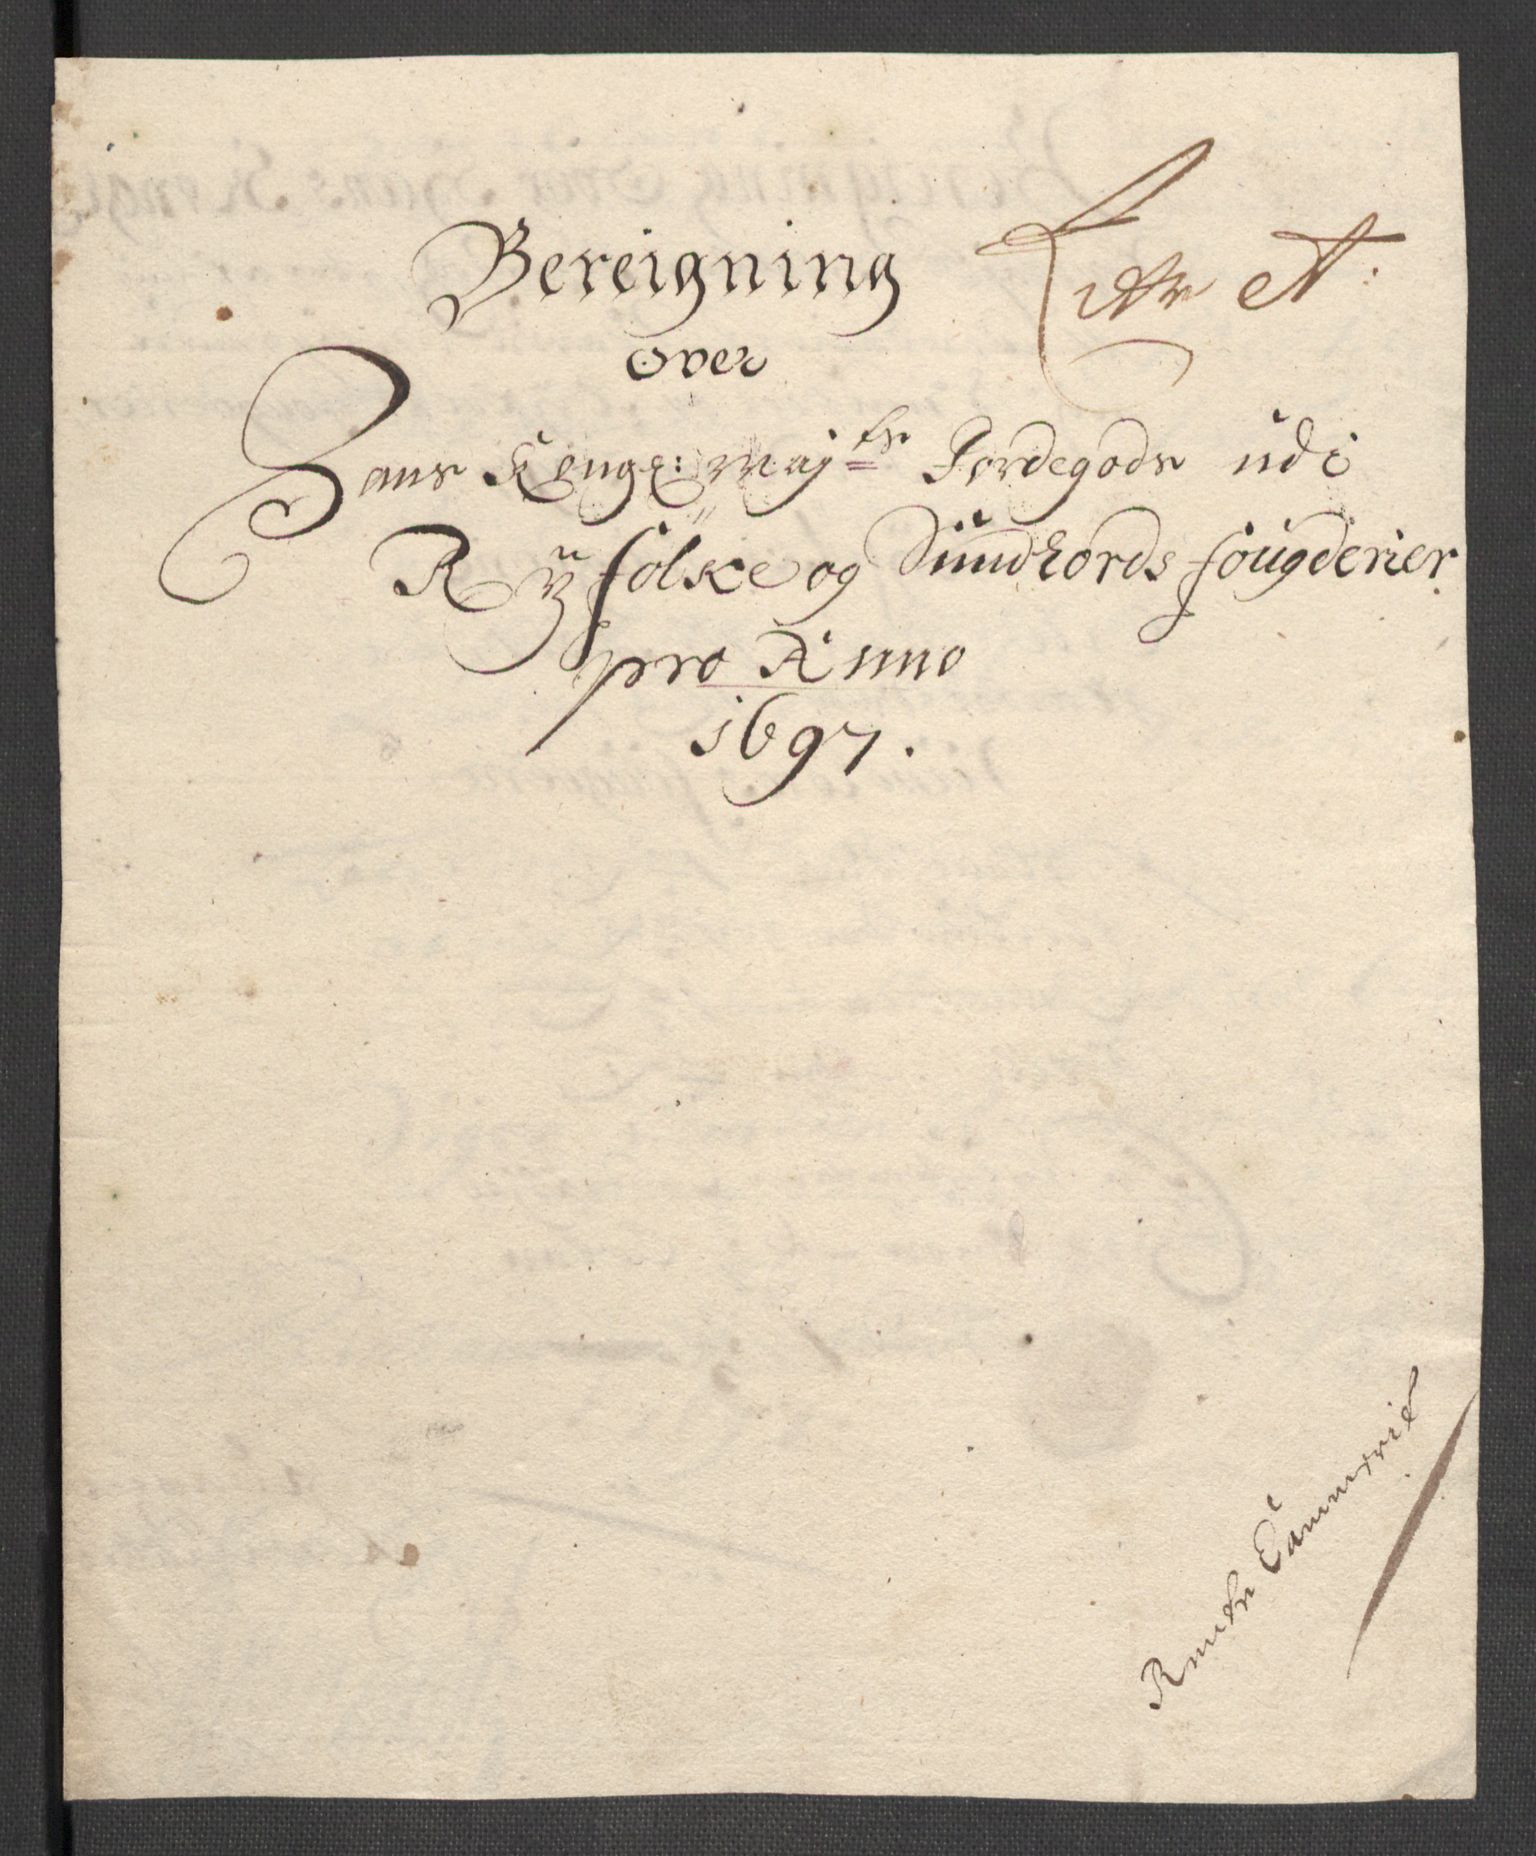 Bereigning
Litr A:
over
Hans Kongl: Maj:ts Jordegods udi
Ryfölke og Sundhords fougderier
pro Anno
1697.
Rente Cammerit